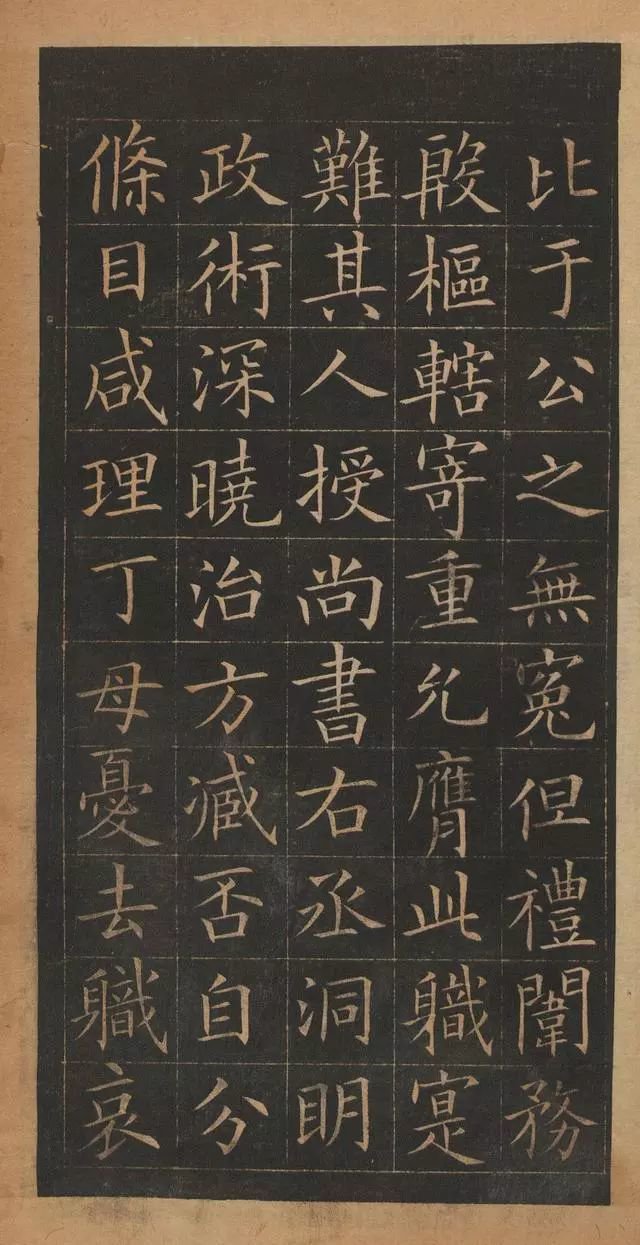 比于公之無寃但禮闈務
殷樞轄寄重允膺此軄寔
難其人授尚書右丞洞明
政術深曉治方臧否自分
條目咸理丁母憂去軄哀